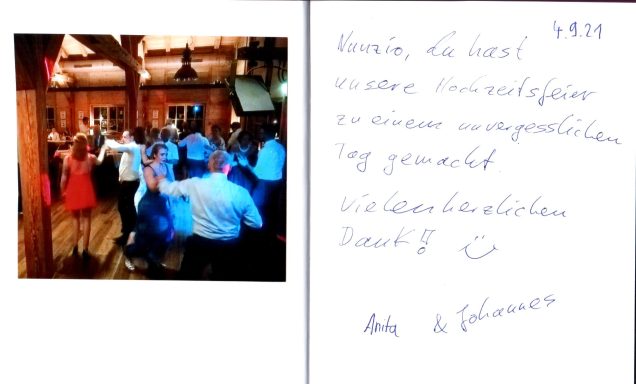 4.9.21
Nunzio, du hast
unsere Hochzeitsfeier
zu einem unvergesslichen
Tag gemacht.
Vielen herzlichen
Dank!!
Anita & Johannes